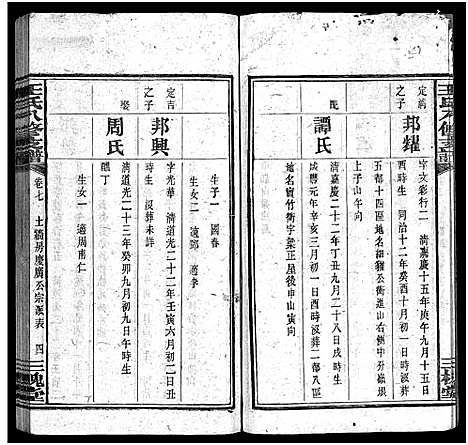 王氏八修支譜
定湖
之子
邦耀
字文彩行二 清嘉慶十五年庚午九月十五日
酉時生 同治十二年癸酉十月十一日時歿葬
五都十四區地名細豬公衖進山右側中
上子山午向
配
譚氏
清嘉慶二十二年丁丑九月二十八日戌時生
咸豐元年辛亥三月初一日酉時歿葬二都八區
地名窗竹衖字梁正屋後申山寅向
三槐堂
生子一 國春
生女二 適鄧 適李
定吉
之子
邦興
字光華 清道光二十二年壬寅六月初二日丑
時生 歿葬未詳
娶
周氏
清道光二十三年癸卯九月初九日午時生
生女一 適周南仁
王氏八修支譜
卷七
土牆房慶廣公宗派表
四
三槐堂